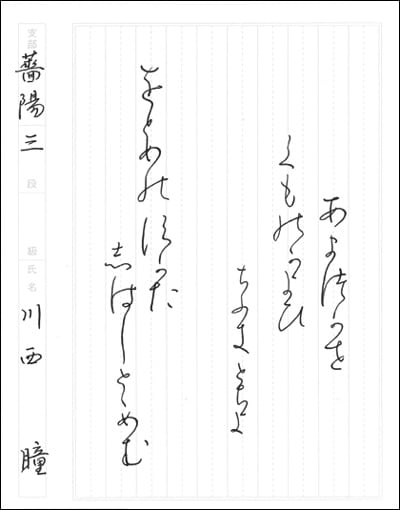 あまつかせ
くものかよひ
ちふきとちよ
をとめのすかた
志はしとゝめむ
支部 薔陽 三 段 級 氏名 川西 瞳